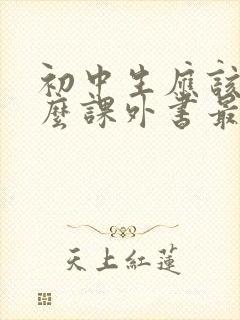 初中生應該
麼課外書最
天上紅蓮